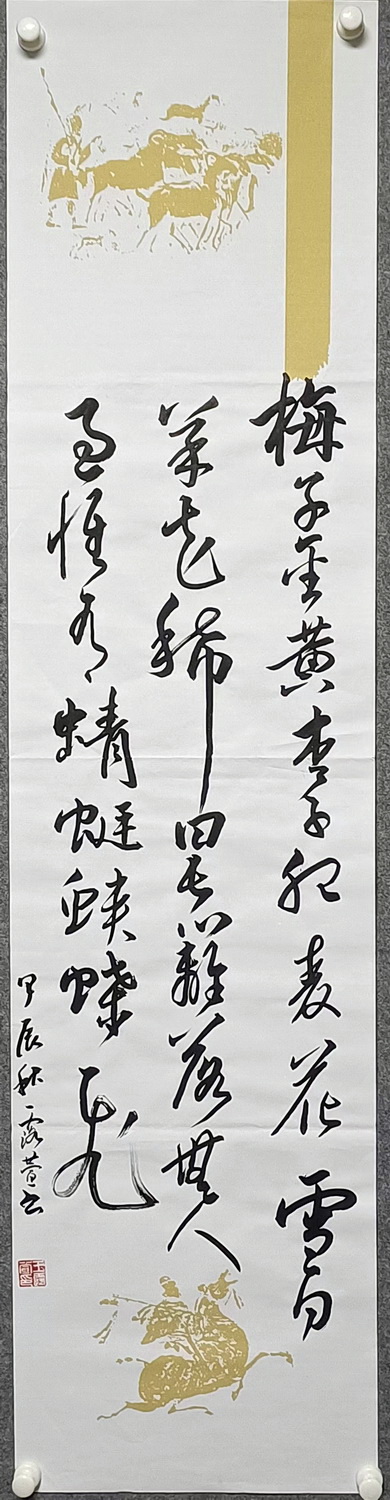 梅子金黄杏子肥麦花雪白
菜花稀日长篱落無人
过惟有蜻蜓蛱蝶飞
甲辰秋露萱书